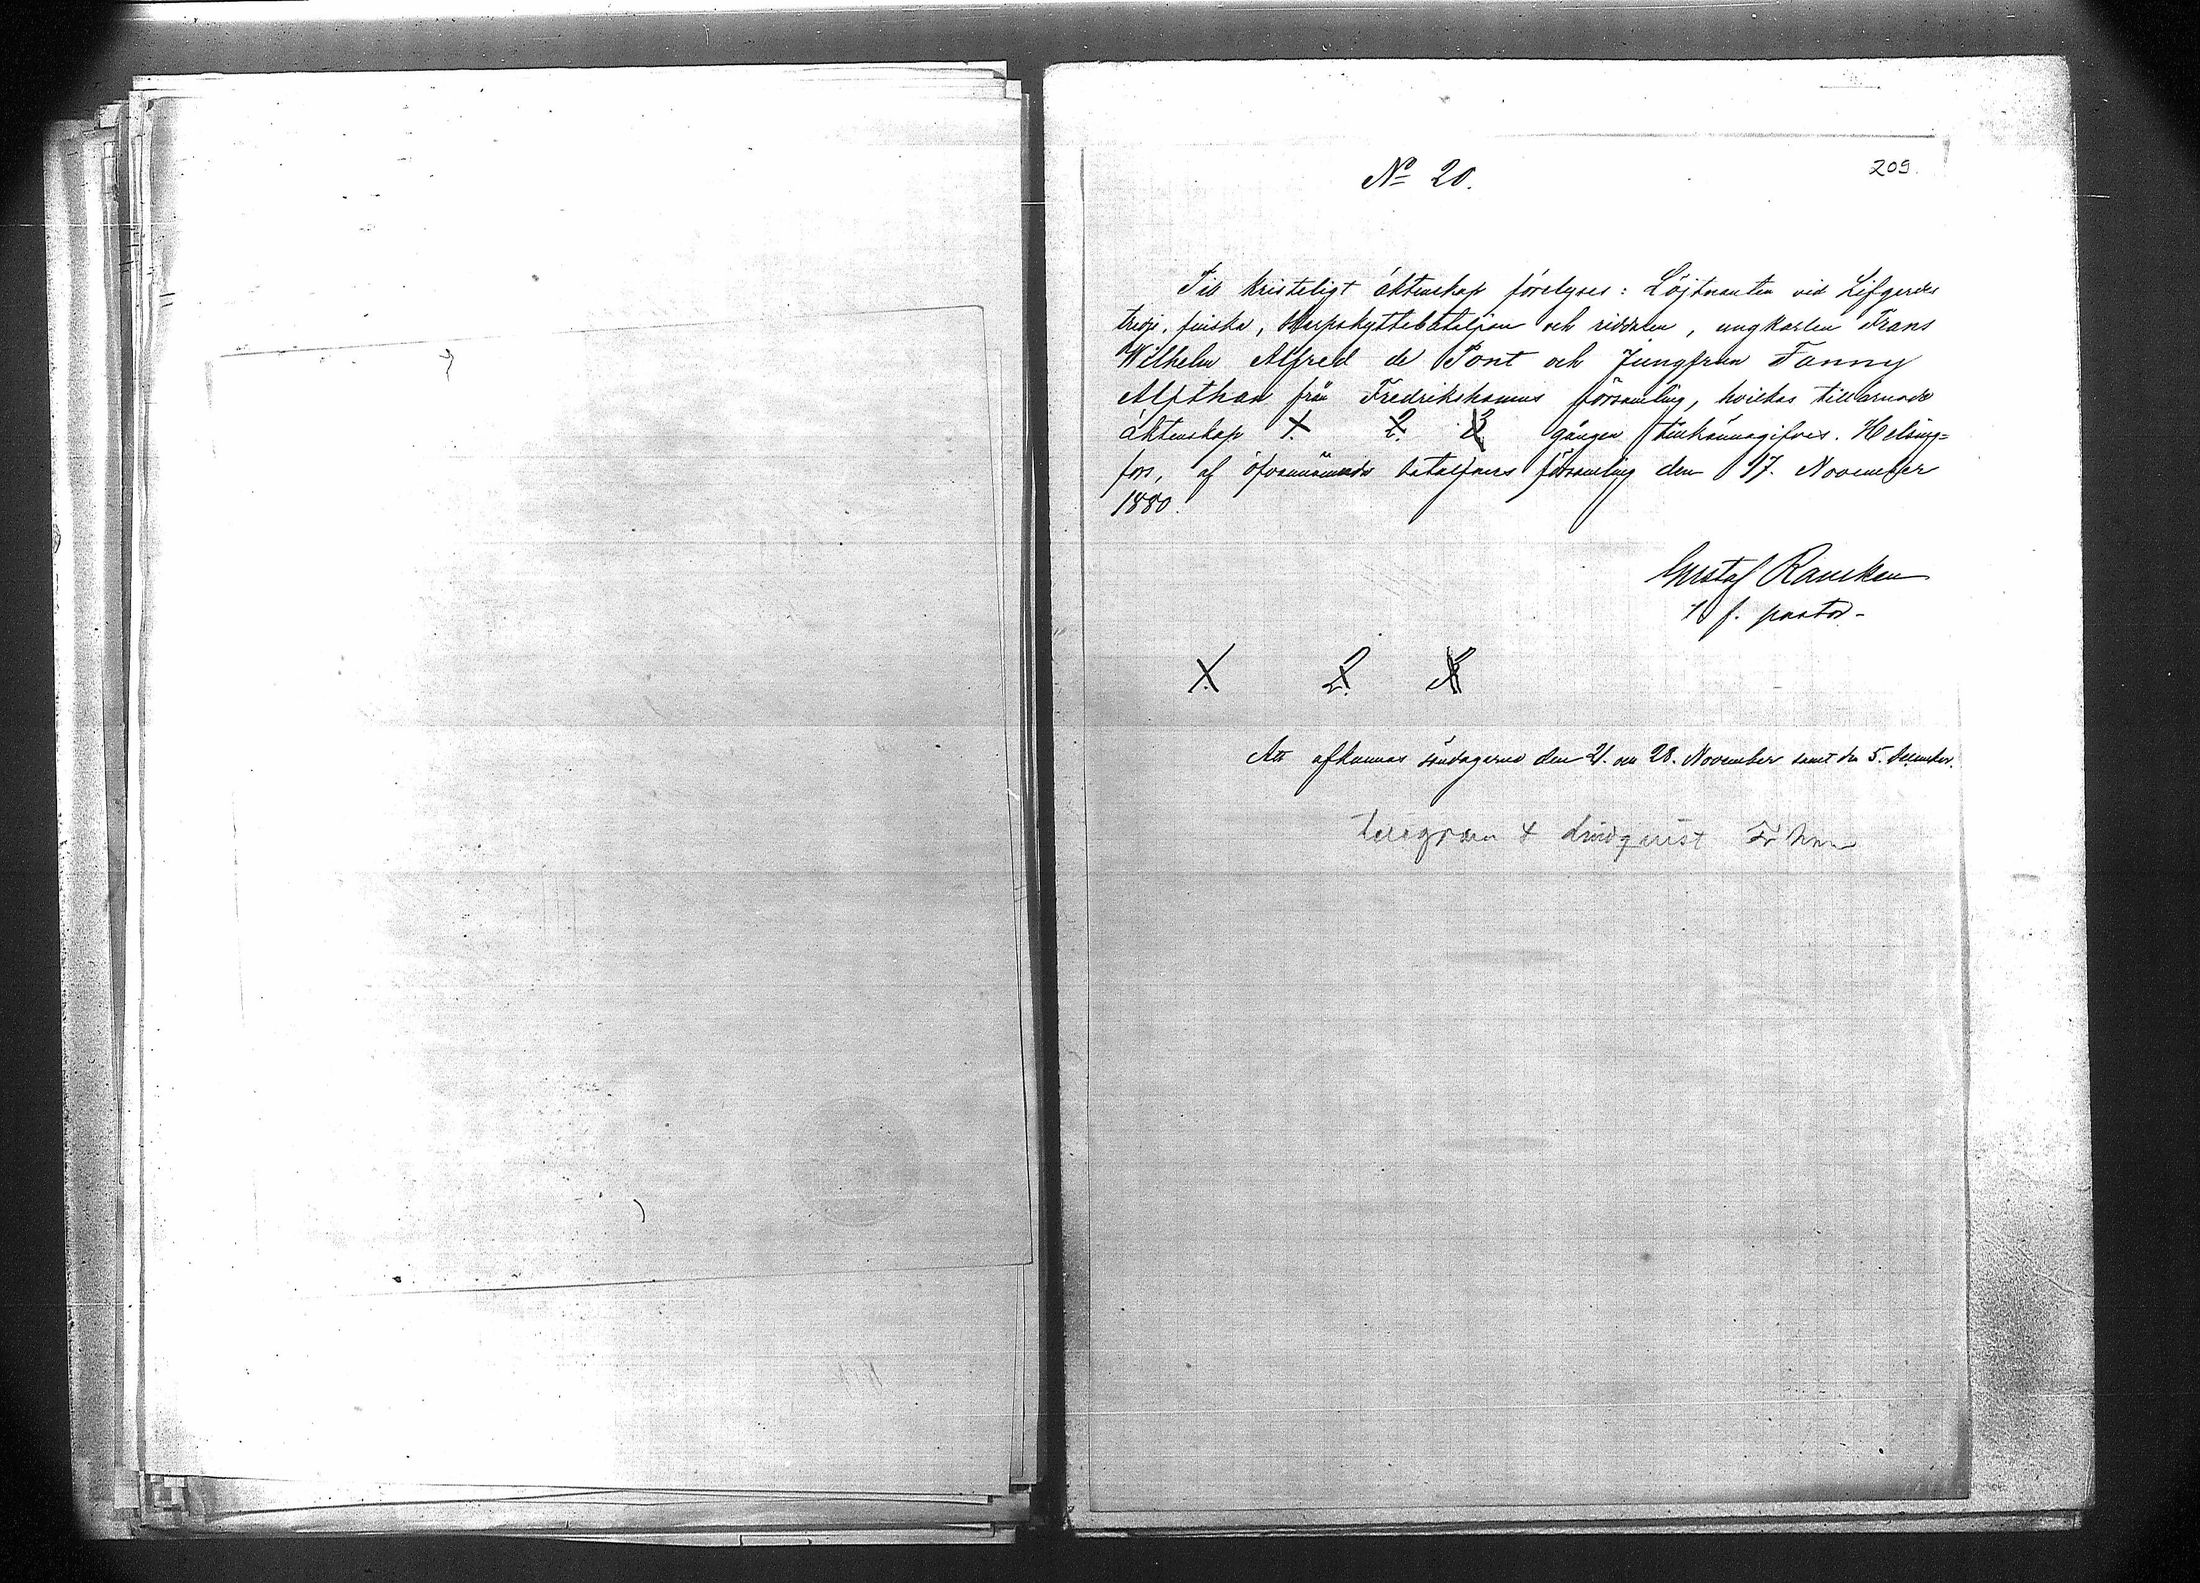 No 20.
209
Till kristeligt äktenskap förelyses: Löjtnanten vid Lifgardes
tredje, finska, skarpskyttebataljon och riddaren, ungkarlen Frans
Wilhelm Alfred de Pont och Jungfrun Fanny
Alfthan från Fredrikshamns församling, hvilkas tillärnade
äktenskap 1. 2. 3 gången tillkännagifves. Helsing=
fors, af ofvannämnde bataljons församling den 17. November
1880.
Gustaf Rancken
t f. pastor
1. 2. 3
Att afkunnas söndagarne den 21. och 28. November samt den 5. December.
telegram Lindqvist